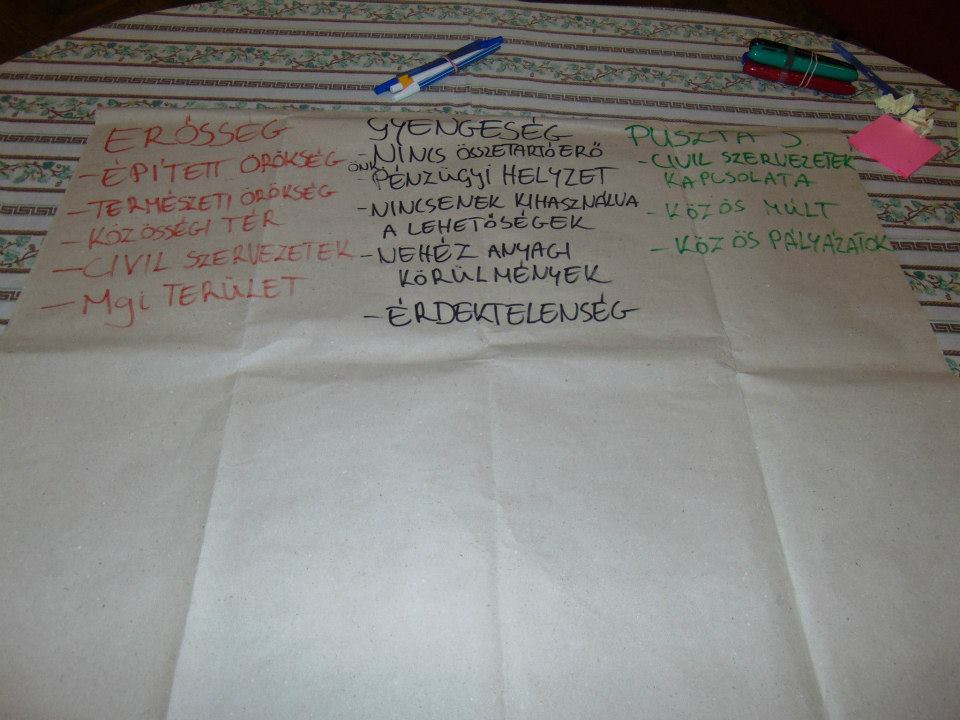 ERŐSSÉG
- ÉPÍTETT ÖRÖKSÉG
- TERMÉSZETI ÖRÖKSÉG
- KÖZÖSSÉGI TÉR
- CIVIL SZERVEZETEK
- Mgi TERÜLET
GYENGESÉG
- NINCS ÖSSZETARTÓ ERŐ
ÖNK. - PÉNZÜGYI HELYZET
- NINCSENEK KIHASZNÁLVA
A LEHETŐSÉGEK
- NEHÉZ ANYAGI
KÖRÜLMÉNYEK
- ÉRDEKTELENSÉG
PUSZTA S.
- CIVIL SZERVEZETEK
KAPCSOLATA
- KÖZÖS MÚLT
- KÖZÖS PÁLYÁZATOK